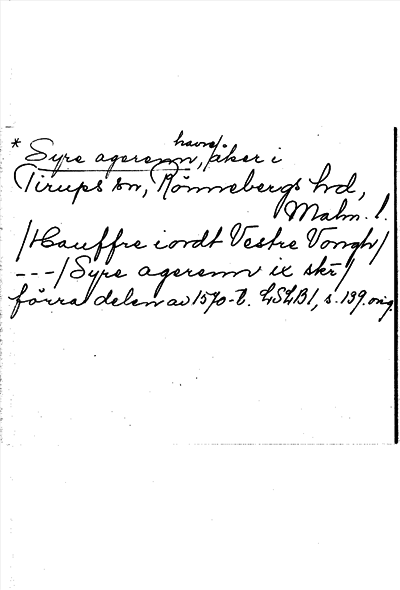 havre/
* Syre agerenn, /åker i
Tirups sn, Rönnebergs hd,
Malm. l.
/Hauffre iordt Vestre Vongh/
---/Syre agerenn ix skr/
förra delen av 1570-t. LSLB1, s. 139. orig.